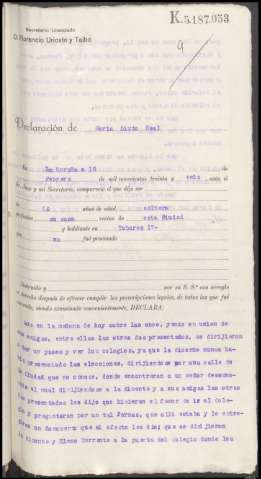 K.5.187.053
9
Secretario: Licenciado
D. Florencio Uriostn y Taibo
Declaración de Maria Sixto Real
En La Coruña a 16 de
Febrero de mil novecientos treinta y seis ante el
Sr. Juez y mi Secretario, compareció el que dijo ser
de 18 años de edad soltera
su casa vecino de esta Ciudad
y habitante en Tabares 17-
no fué procesado
Instruido y por su S.ª con arreglo
a derecho después de ofrecer cumplir las prescripciones legales, de todas las que fué
siendo examinado convenientemente, DECLARA:
Que en la mañana de hoy sobre las once, yendo en unión de
sus amigas, entre ellas las otras dos presentadas, se dirijieron
a dar un paseo y ver los colegios, ya que la dicente nunca ha
presenciado las elecciones, dirijiéndose por una calle de
la Ciudad que no conoce, donde encontraron a un señor descono-
cido el cual dirijiéndose a la dicente y a sus amigas las otras
dos presentadas les dijo que hicieran el favor de ir al Cole-
gio y preguntaran por un tal Porras, que allí estaba y le entre-
garan un banquero que al efecto les dio; que se dirijieron
la dicente y Elena Barrente a la puerta del colegio donde les